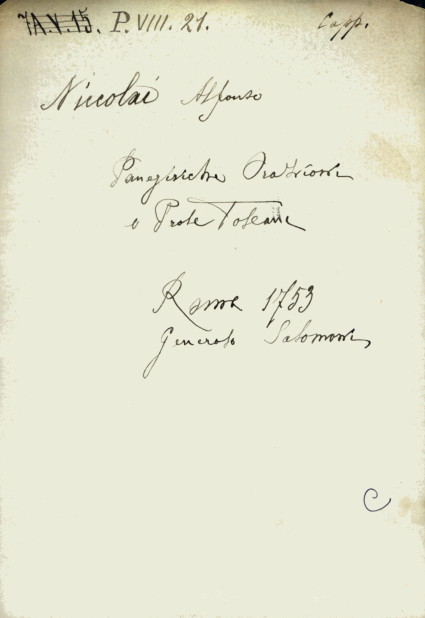 7A.V.15. P. VIII. 21. Capp.
Niccolai Alfonso
Panegiriche Orazioni
e Prose Toscane
Roma 1753
Generoso Salomoni
C